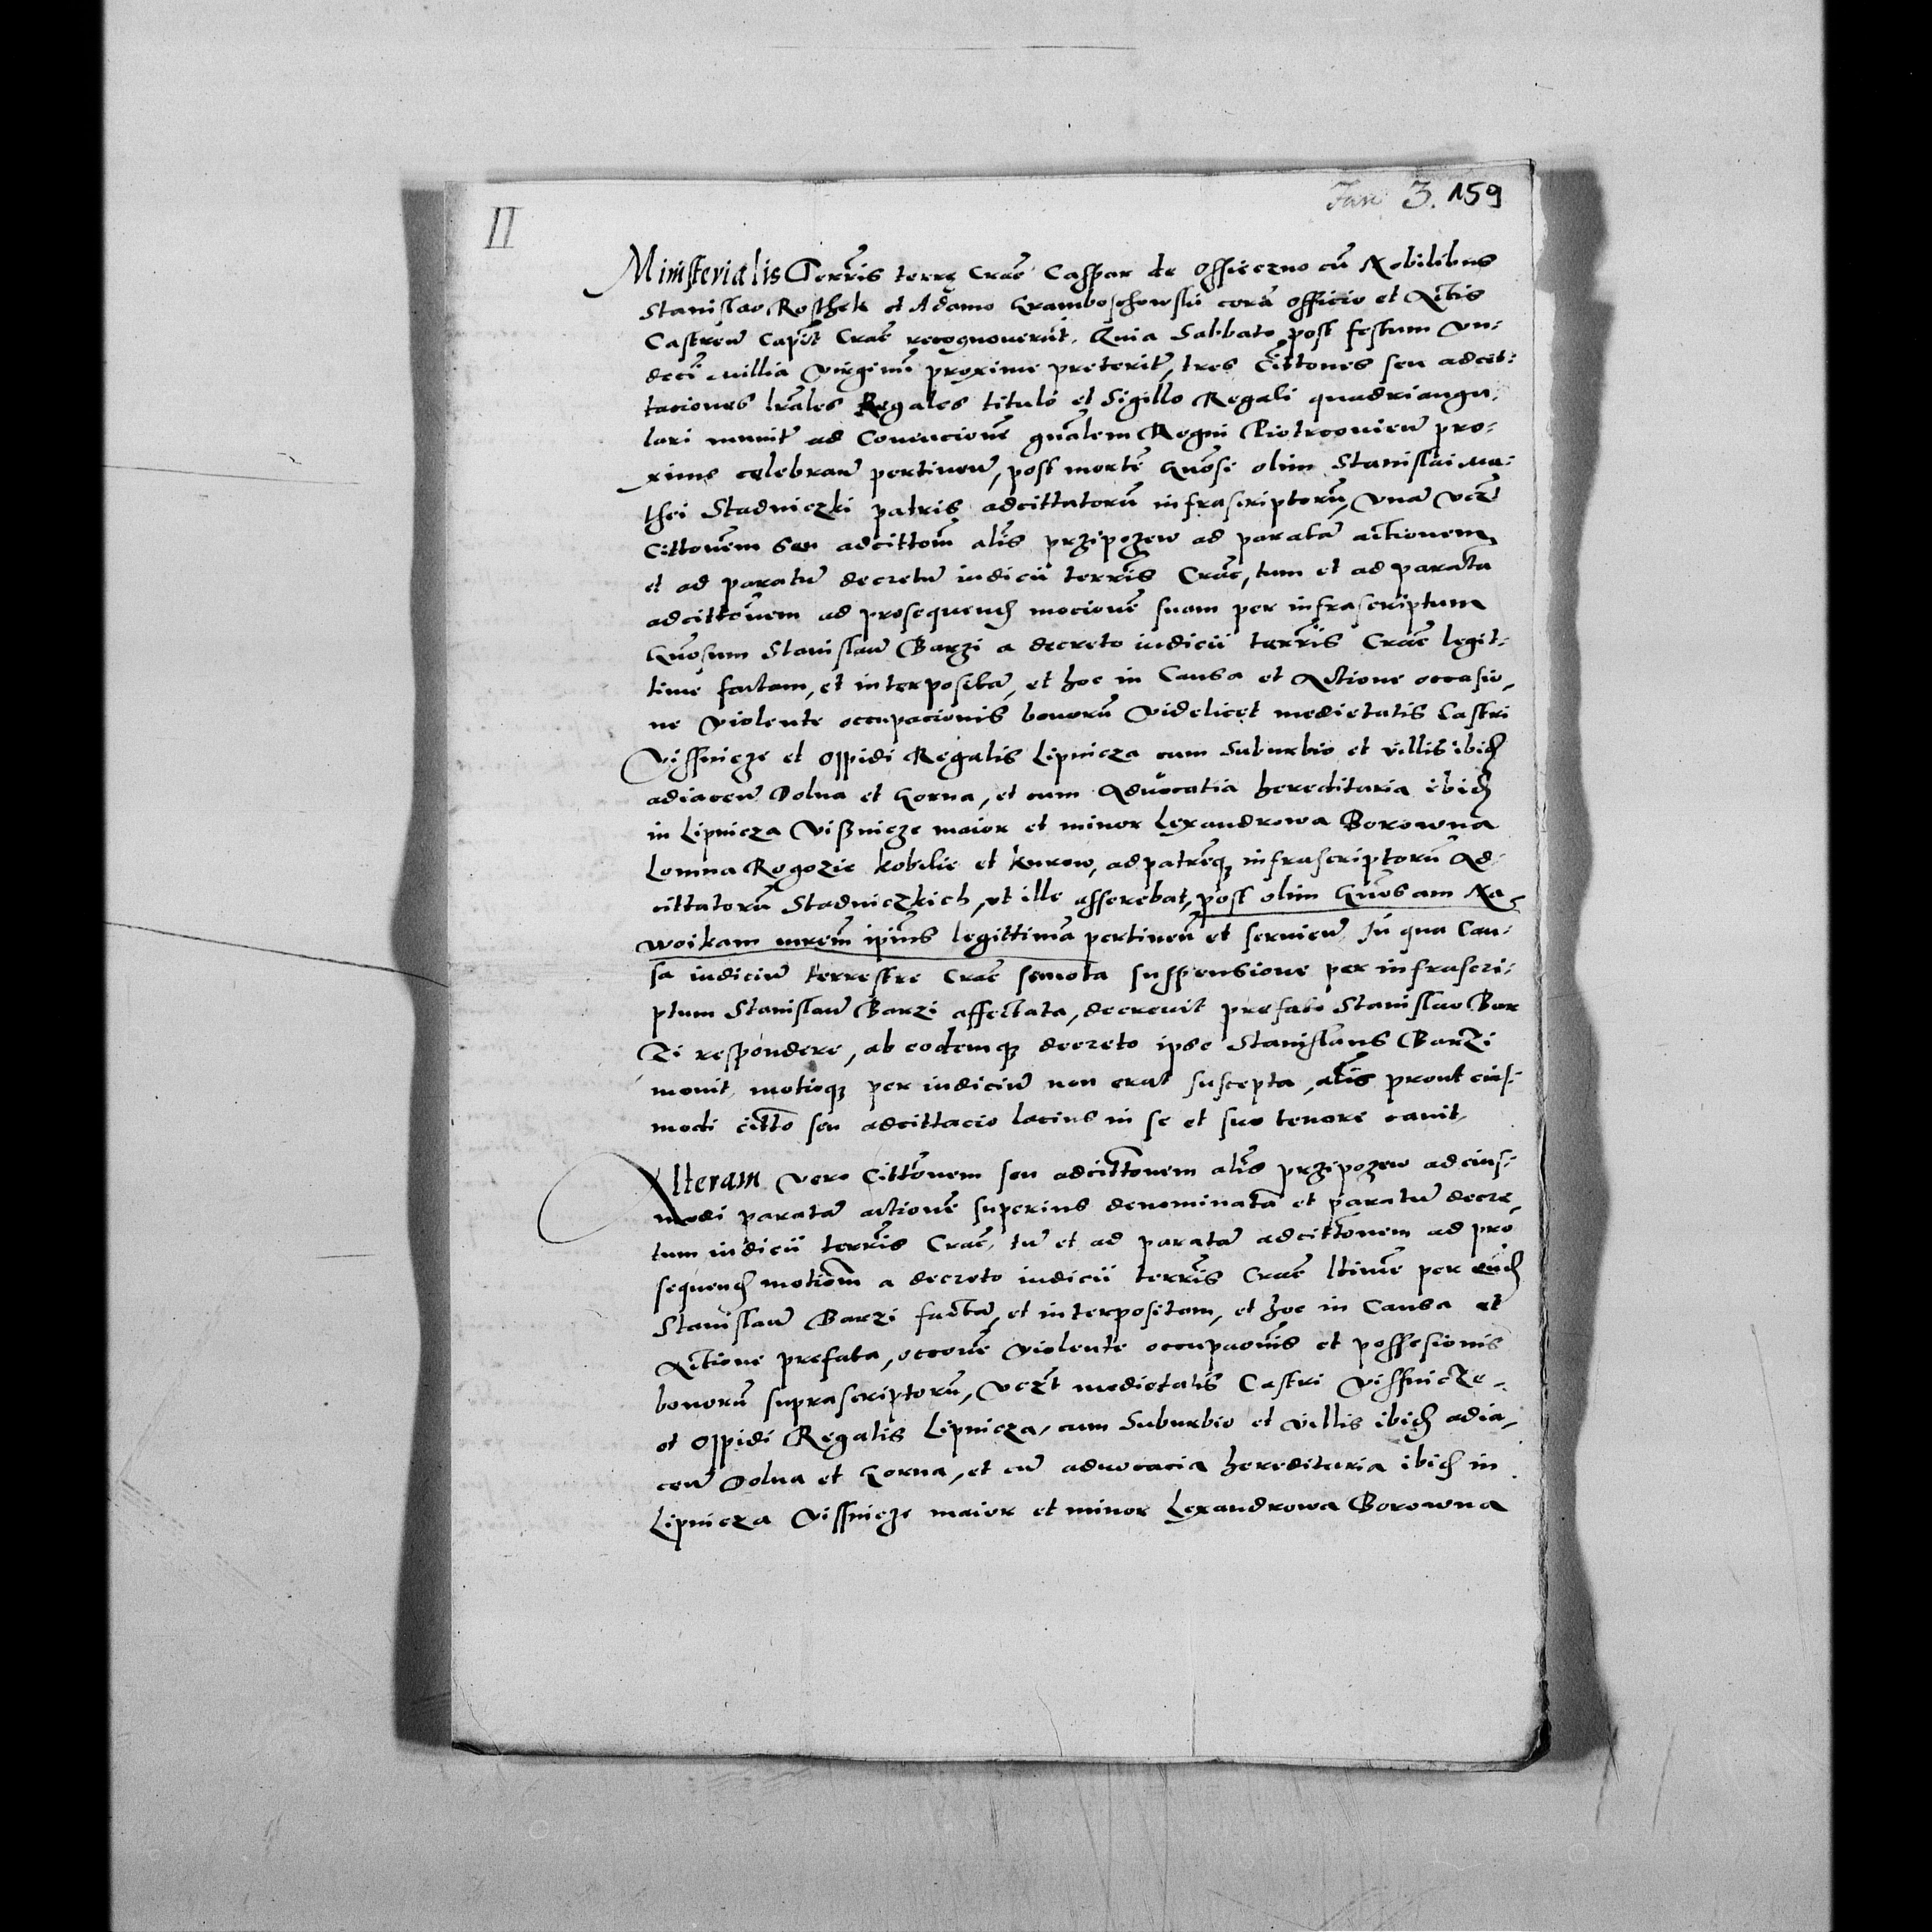 II
Jan 3. 159
Ministerialis Terrīs terrę Crac̄ Casspar de Ossieczno cū Nobilibus
Stanislao Rosthek et Adamo Gramboschowski corā officio et Actis
Castren̄ Capit̄ Crac̄ recognoverūt. Quia Sabbato post festum Un-
deci Millia Virginū proxime preterit̄, tres Citt̄ones seu adcit-
taciones lrāles Regales titulo et Sigillo Regali quadriangu-
lari munit̄ ad Convencionē gnālem Regni Piotrcovien̄ pro-
xime celebran̄ pertinen̄, post mortē Gnōsi olim Stanislai Ma-
thei Stadniczki patris adcittatorū infrascriptorū, Unā vczt̄
Cittonēm seu adcittom̄ alīs przipozew ad paratā actionem
et ad paratū decretū iudicii terrīs Crac̄, tum et ad paratā
adcittōnem ad prosequend̄ mocionē suam per infrascriptum
Gnōsum Stanislaū Barzi a decreto iudicii terrīs Crac̄ legit-
time factam, et interpositā, et hoc in Causa et Actione occasio-
ne violente occupacionis bonorū videlicet medietatis Castri
Vissnicze et Oppidi Regalis Lipnicza cum Suburbio et villis ibid̄
adiacen̄ Dolna et Gorna, et cum Advocatia hereditaria ibid̄
in Lipnicza Vißnicze maior et minor Lexandrowa Borowna
Lomna Rogozie Kobilie et Kurow, ad patremq̄ infrascriptorū Ad-
cittatorū Stadniczkich, ut ille asserebat, post olim Gnōsam Na-
woikam uxrēm ipīus legittimā pertinen̄ et servien̄ In qua Cau-
sa iudiciū terrestre Crac̄ semota suspensione per infrascri-
ptum Stanislaū Barzi affectata, decrevit prefato Stanislao Bar
zi respondere, ab eodemq̄ decreto ipse Stanislaus Barzi
movit, motioq̄ per iudiciū non erat suscepta, alīs prout eius-
modi citt̄o seu adcittacio lacius in se et suo tenore canit.
Alteram vero Cittōnem seu adcittōnem alīs przipozew ad eius-
modi paratā actionē superius denominatā et paratū decre-
tum iudicii terrīs Crac̄, tū et ad paratā adcittōnem ad pro
sequend̄ motiom̄ a decreto iudicii terrīs Crac̄ ltīme per eūd̄
Stanislaū Barzi factā, et interpositam, et hoc in Causa et
Actione prefata, occonē violente occupaōnis et possesionis
bonorū suprascriptorū, vczt̄ medietatis Castri Vissnicze
et Oppidi Regalis Lipnicza, cum Suburbio et villis ibid̄ adia-
cen̄ Dolna et Gorna, et cū advocacia hereditaria ibid̄ in
Lipnicza Vissnicze maior et minor Lexandrowa Borowna